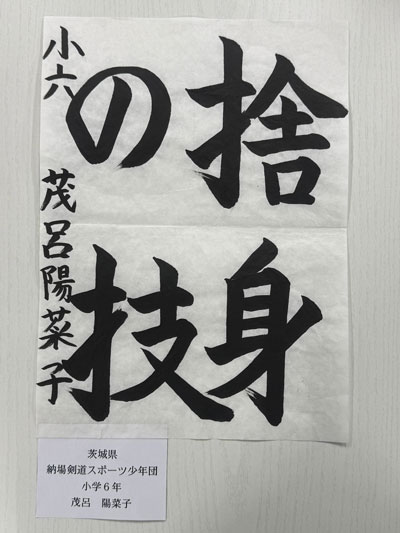 捨身
の技
小六 茂呂陽菜子
茨城県
納場剣道スポーツ少年団
小学６年
茂呂　陽菜子